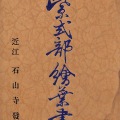 紫式部繪葉書
近江 石山寺發